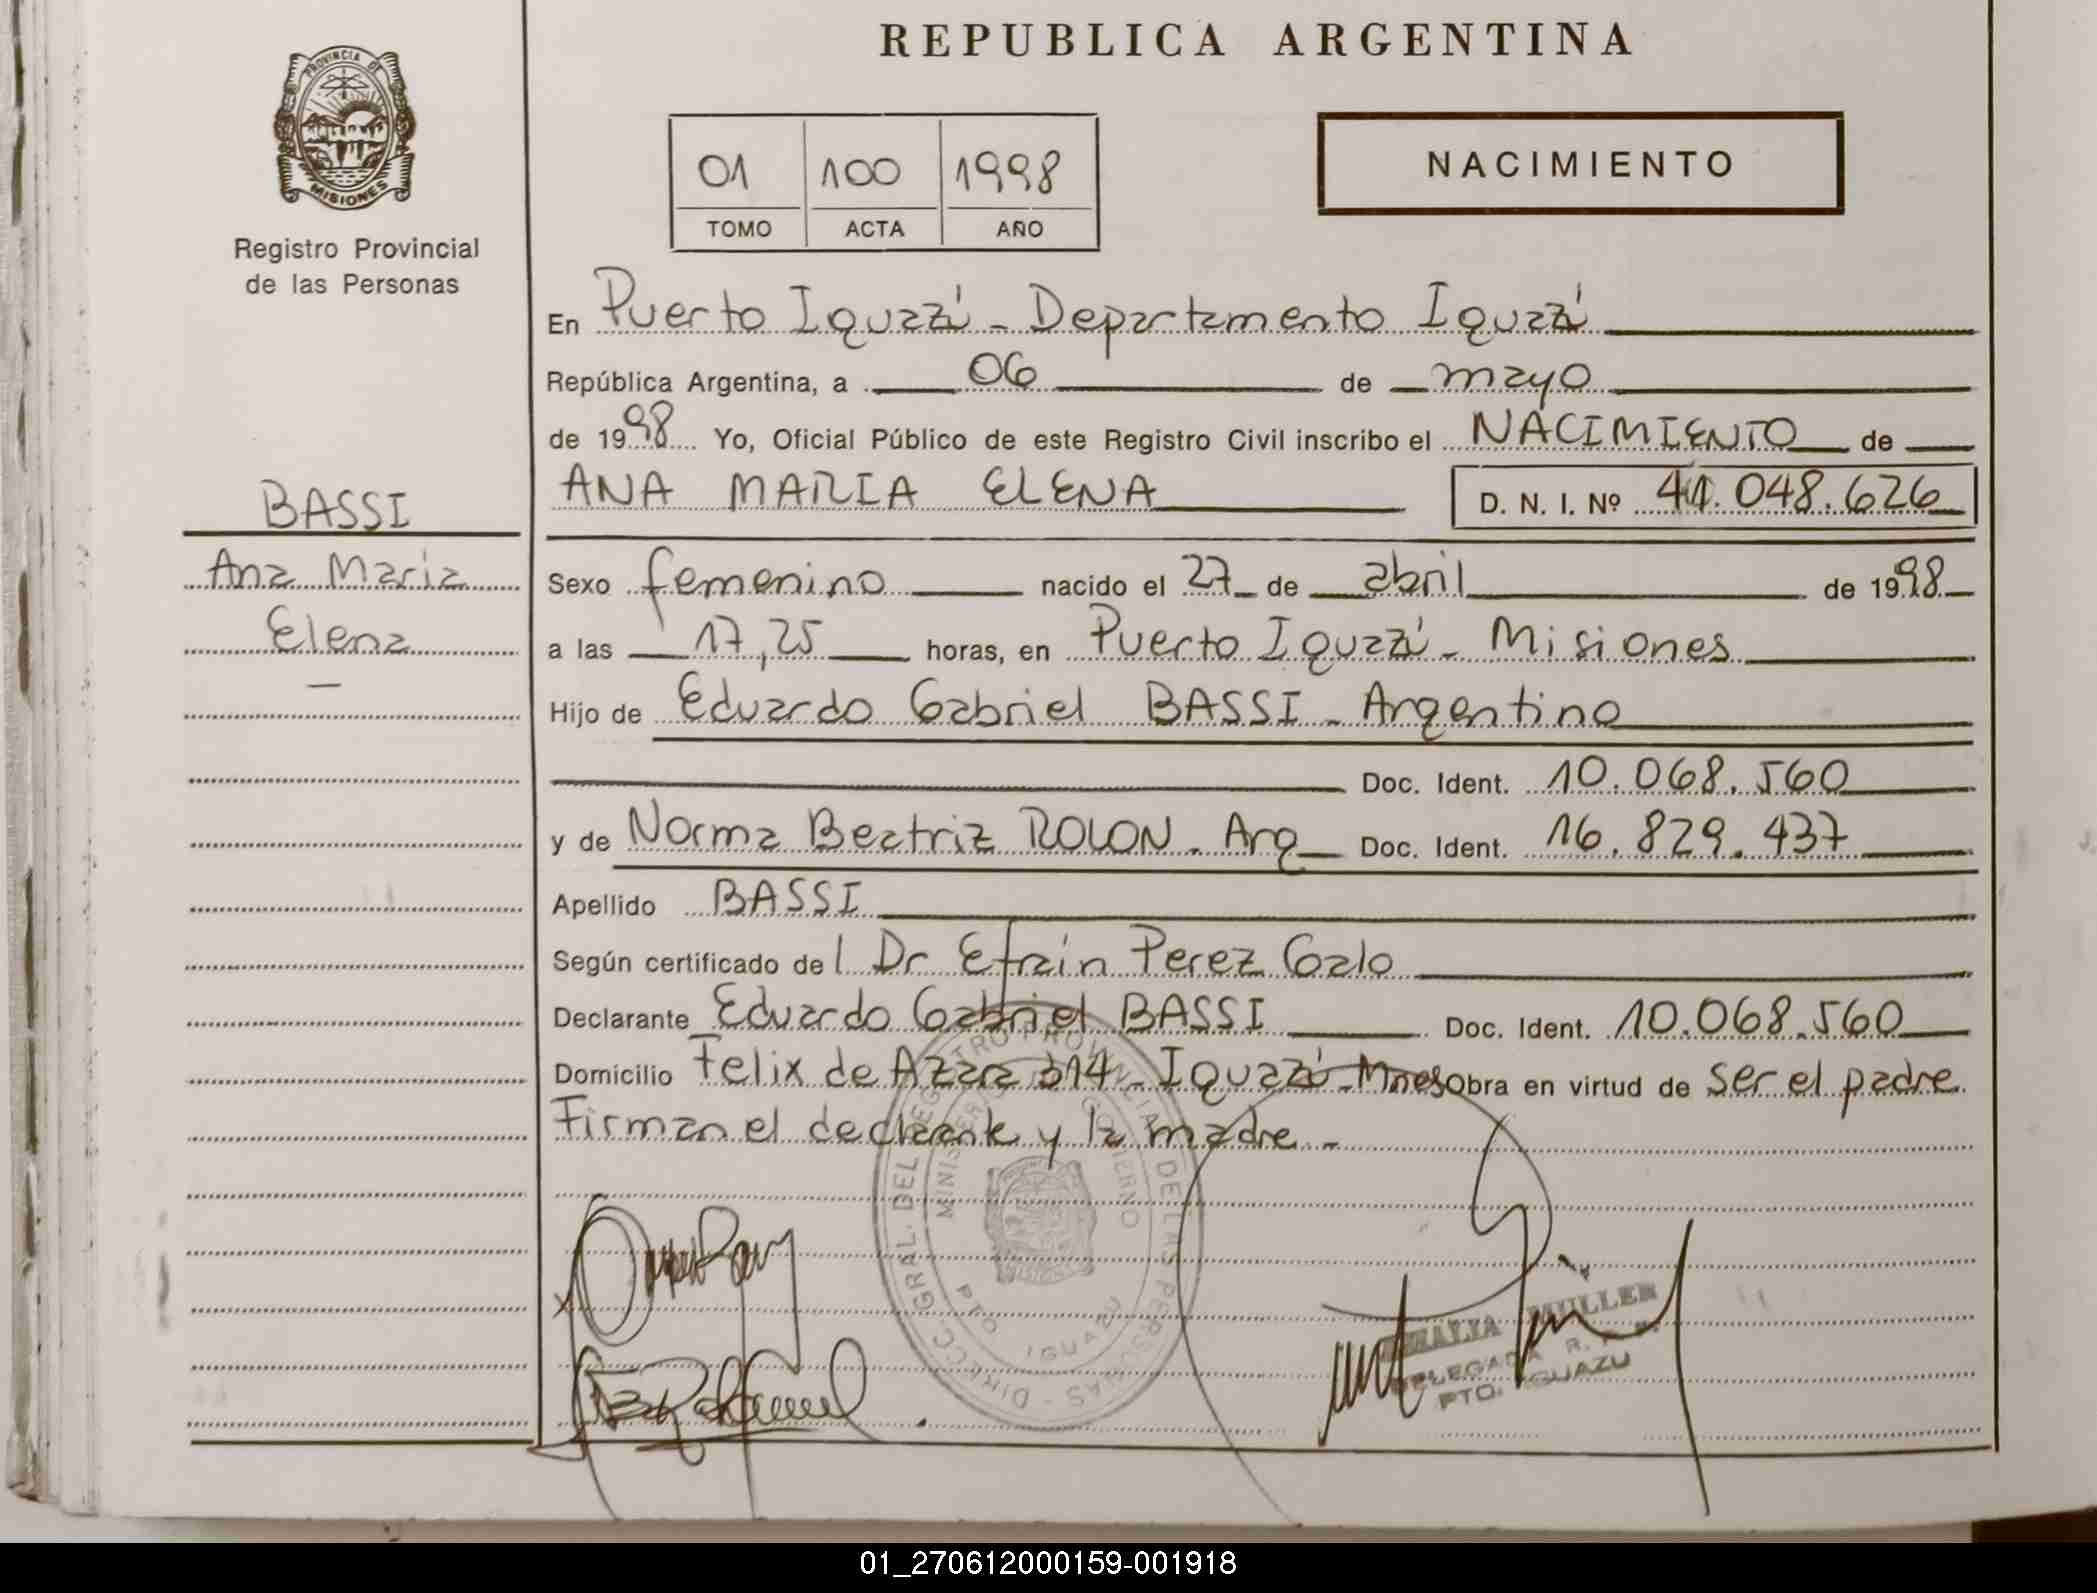 REPUBLICA ARGENTINA
PROVINCIA DE
MISIONES
Registro Provincial
de las Personas
01 100 1998
TOMO ACTA AÑO
NACIMIENTO
En Puerto Iguazú - Departamento Iguazú
República Argentina, a 06 de mayo
de 1998 Yo, Oficial Público de este Registro Civil inscribo el NACIMIENTO de
ANA MARIA ELENA D. N. I. Nº 41.048.626
BASSI
Ana Maria
Elena
Sexo femenino nacido el 27 de abril de 1998
a las 17,25 horas, en Puerto Iguazú - Misiones
Hijo de Eduardo Gabriel BASSI - Argentino
Doc. Ident. 10.068.560
y de Norma Beatriz ROLON - Arg Doc. Ident. 16.829.437
Apellido BASSI
Según certificado del Dr Efraín Perez Galo
Declarante Eduardo Gabriel BASSI Doc. Ident. 10.068.560
Domicilio Felix de Azara 314 - Iguazú - Mnes Obra en virtud de ser el padre
Firman el declarante y la madre -
DIRECC. GRAL. DEL REGISTRO PROVINCIAL DE LAS PERSONAS -
MINISTERIO GOBIERNO
PTO IGUAZU
MULLER
DELEGADA R. P.
PTO. IGUAZU
01_270612000159-001918